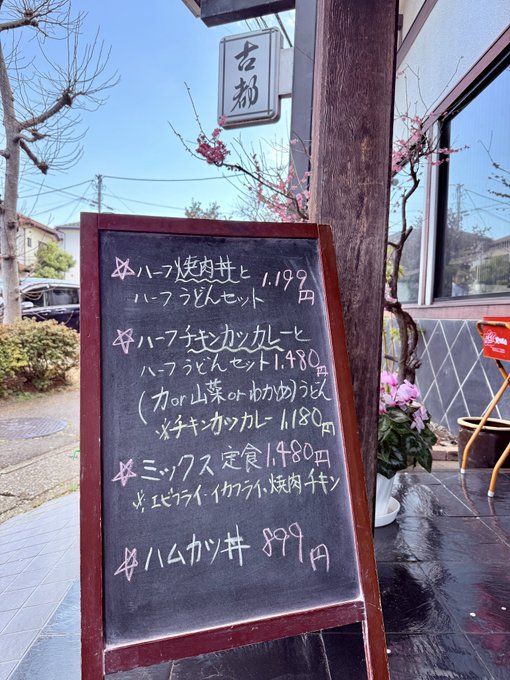 古都
☆ハーフ焼肉丼と
ハーフうどんセット 1,199円
☆ハーフチキンカツカレーと
ハーフうどんセット1,480円
(力or山菜orわかめ)うどん
※チキンカツカレー 1,180円
☆ミックス定食1,480円
※エビフライ・イカフライ、焼肉チキン
☆ハムカツ丼 899円